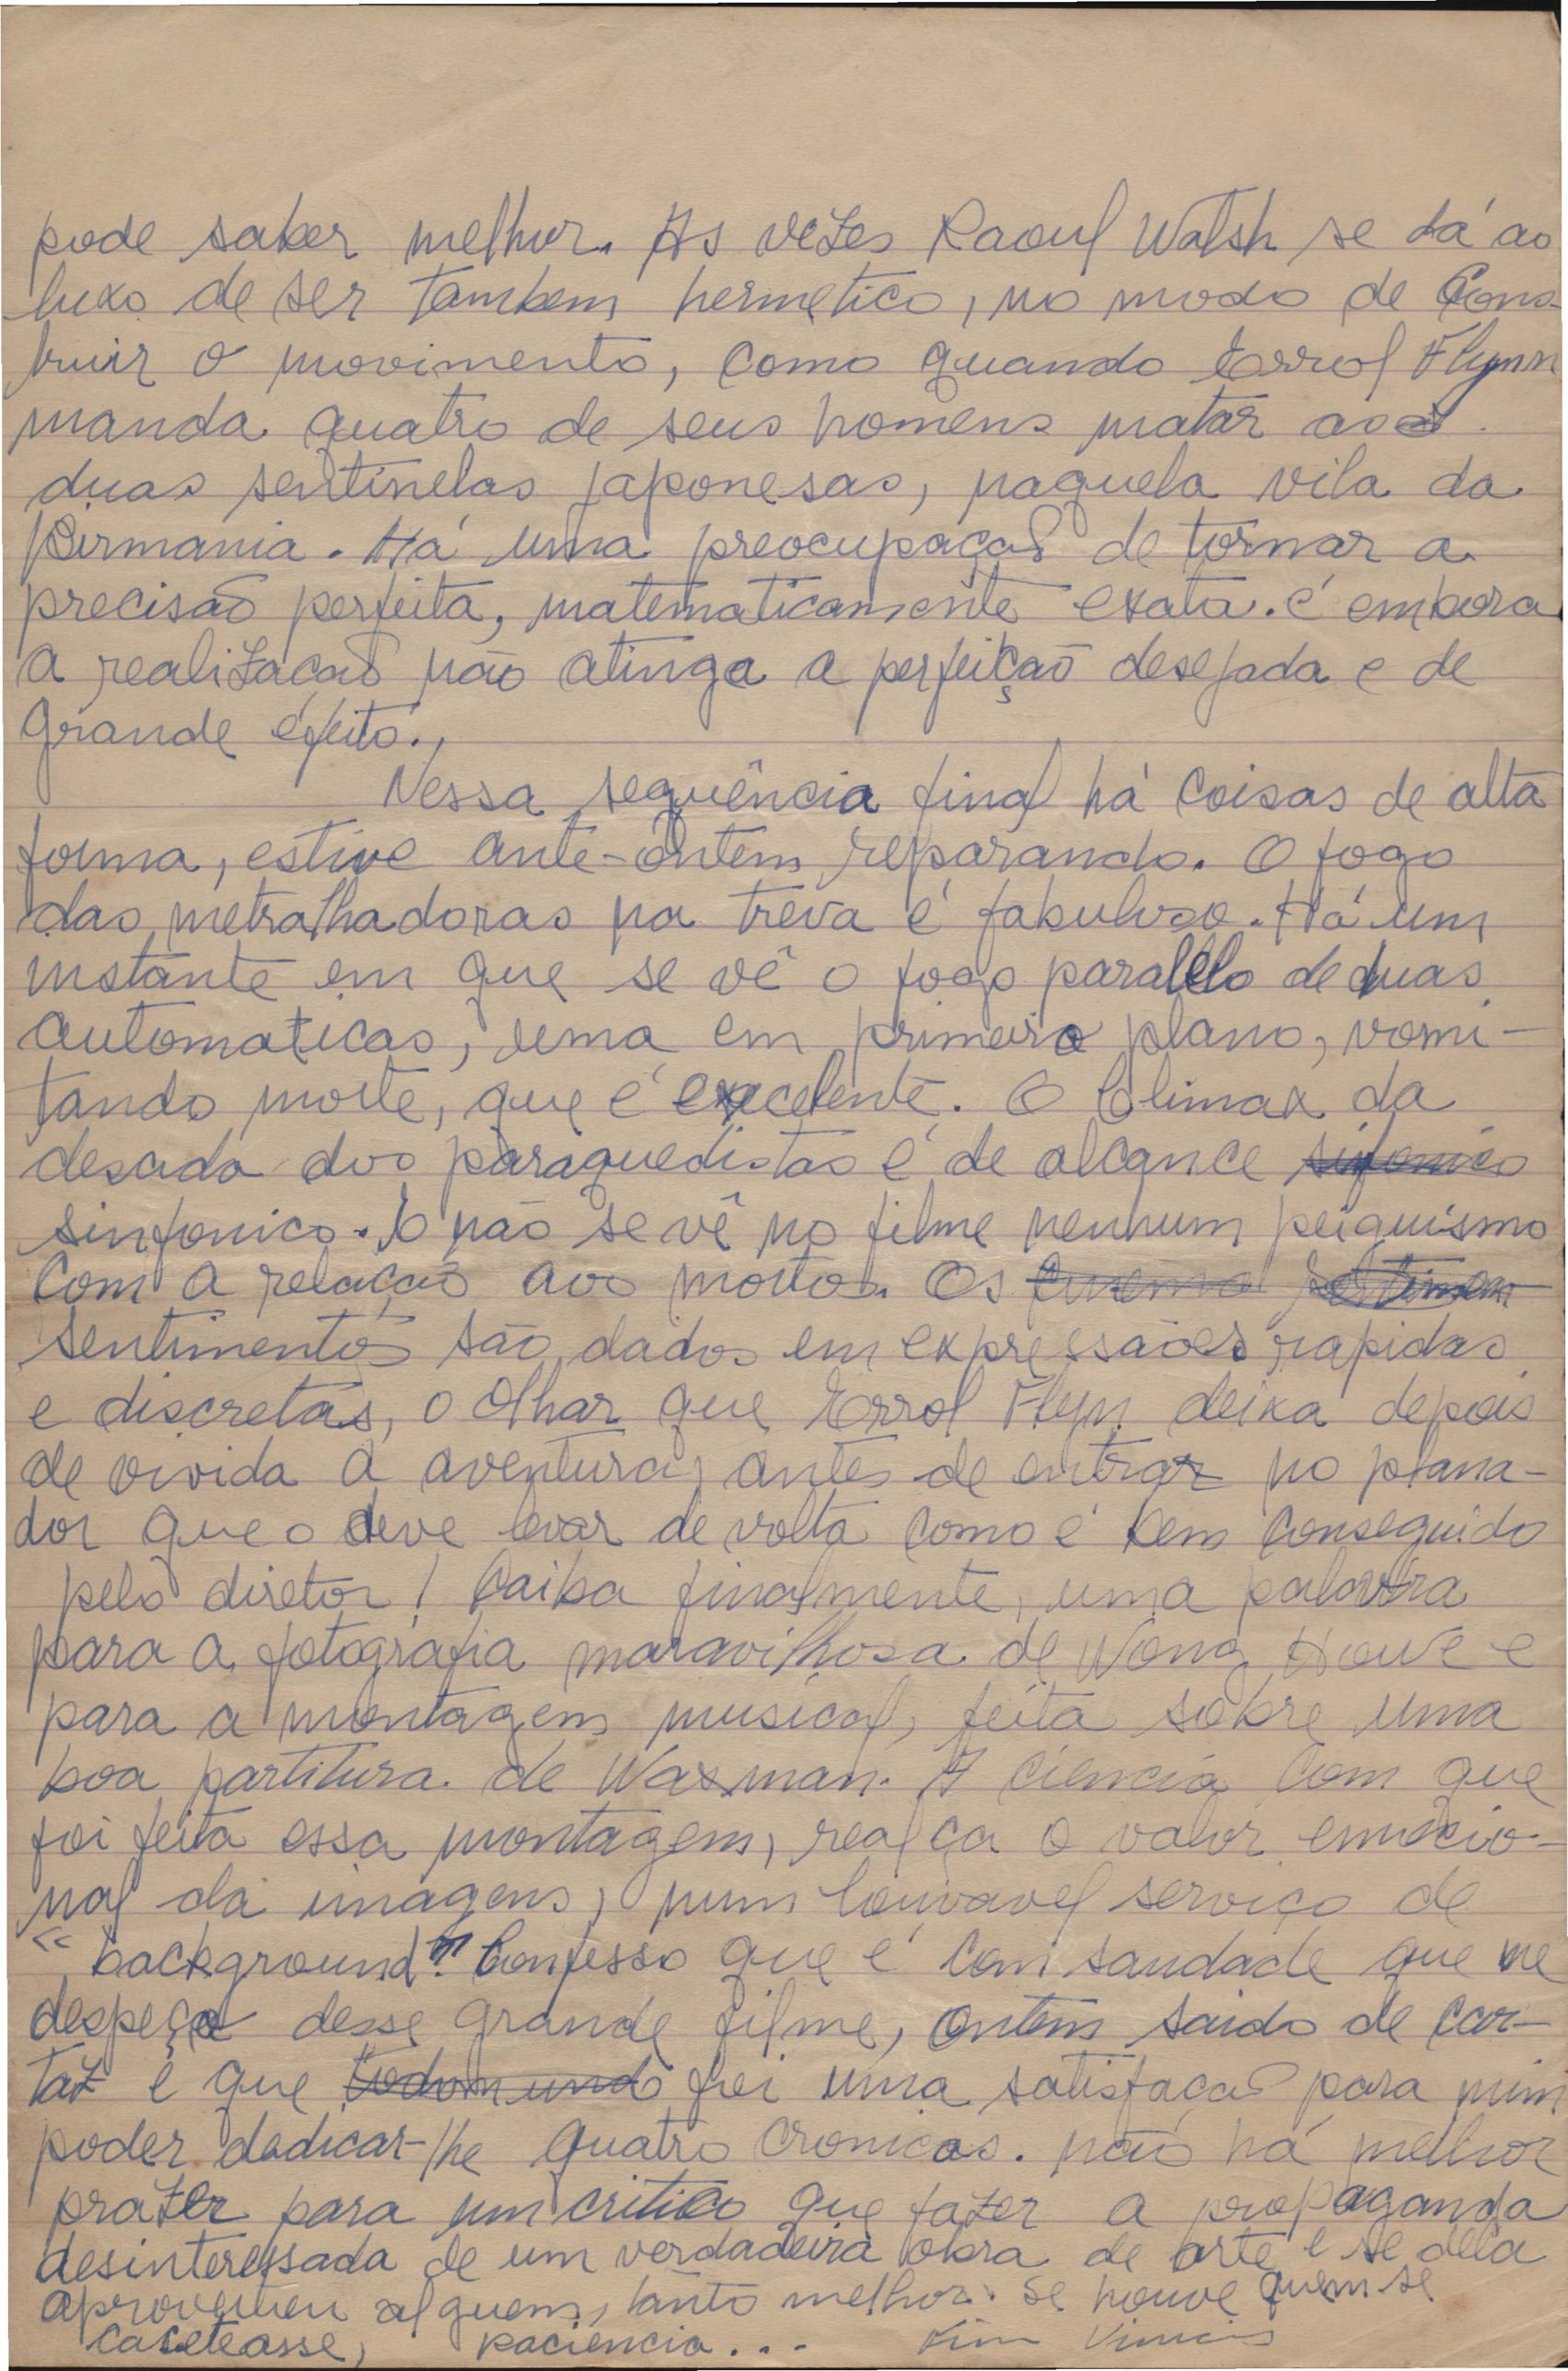 pode saber melhor. As vezes Raoul Walsh se dá ao
luxo de ser tambem hermetico, no modo de Cons-
truir o movimento, como quando Errol Flynn
manda quatro de seus homens matar as
duas sentinelas japonesas, naquela vila da
Birmania. Há uma preocupação de tornar a
precisão perfeita, matematicamente exata. é embora
a realização não atinga a perfeição desejada e de
grande efeito.
Nessa sequência final há coisas de alta
forma, estive ante-ontem reparando. O fogo
das metralhadoras na treva é fabuloso. Há um
instante em que se vê o fogo paralelo de duas
automaticas, uma em primeiro plano, vomi-
tando morte, que é excelente. O Climax da
descida dos paraquedistas é de alcance sinfonico
sinfonico. E não se vê no filme nenhum peiguismo
com a relação aos mortos. Os
sentimentos são dados em expressãoes rapidas
e discretas, o olhar que Errol Flyn deixa depois
de vivida a aventura, antes de entrar no plana-
dor que o deve levar de volta como é bem conseguido
pelo diretor! Caiba finalmente, uma palavra
para a fotografia maravilhosa de Wong Howe e
para a montagem musical, feita sobre uma
boa partitura de Waxman. A ciencia com que
foi feita essa montagem, realça o valor emocio-
nal da imagens, num louvavel serviço de
"background". Confesso que é com saudade que me
despeço desse grande filme, ontem saido de car-
taz e que todo mundo foi uma satisfação para mim
poder dedicar-lhe quatro cronicas. não há melhor
prazer para um critico que fazer a propaganda
desinteressada de um verdadeira obra de arte e se dela
aproveitou alguem, tanto melhor. Se houve quem se
caceteasse, paciencia...